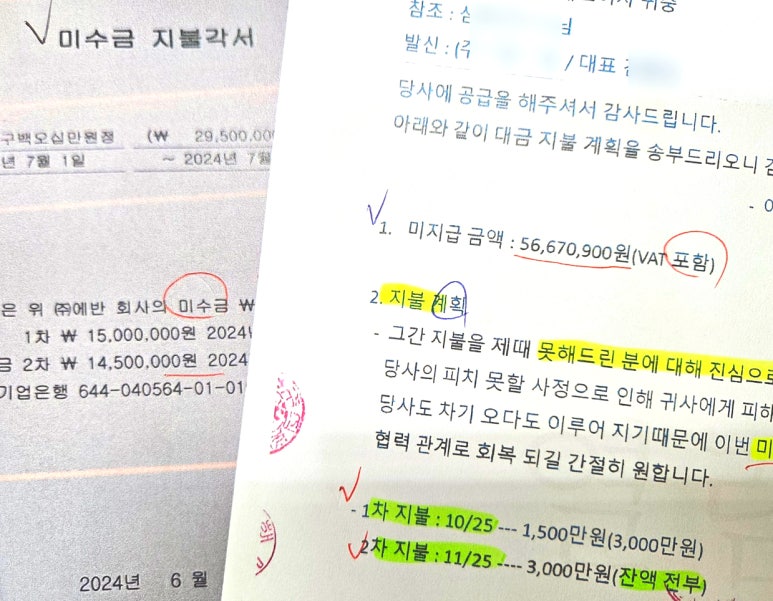 미수금 지불각서
구백오십만원정 (₩ 29,500,00
년 7월 1일 ~ 2024년 7월
은 위 ㈜에반 회사의 미수금 ₩
1차 ₩ 15,000,000원 2024
금 2차 ₩ 14,500,000원 2024
기업은행 644-040564-01-01
2024년 6월
참조 :
발신 : (주 / 대표
당사에 공급을 해주셔서 감사드립니다.
아래와 같이 대금 지불 계획을 송부드리오니
1. 미지급 금액 : 56,670,900원(VAT 포함)
2. 지불 계획
- 그간 지불을 제때 못해드린 분에 대해 진심으로
당사의 피치 못할 사정으로 인해 귀사에게 피해
당사도 차기 오다도 이루어 지기때문에 이번 미
협력 관계로 회복 되길 간절히 원합니다.
- 1차 지불 : 10/25 --- 1,500만원(3,000만원)
2차 지불 : 11/25 ---- 3,000만원(잔액 전부)